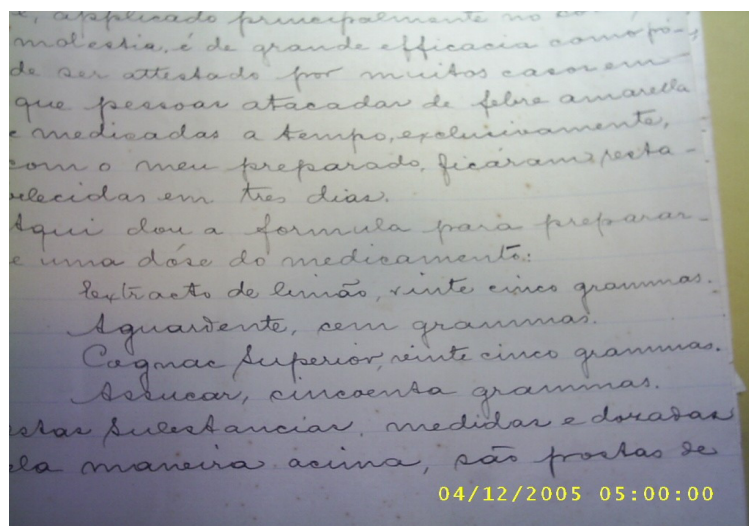 , applicado principalmente no co
molestia, é de grande efficacia como pó-
de ser attestado por muitos casos em
que pessoas atacadas de febre amarella
e medicadas a tempo, exclusivamente,
com o meu preparado, ficáram resta-
elecidas em tres dias.
Aqui dou a formula para preparar-
e uma dóse do medicamento:
Extracto de limão, vinte cinco grammas.
Aguardente, cem grammas.
Cognac Superior, vinte cinco grammas.
Assucar, cincoenta grammas.
estas substancias, medidas e dozadas
ela maneira acima, são postas de
04/12/2005 05:00:00